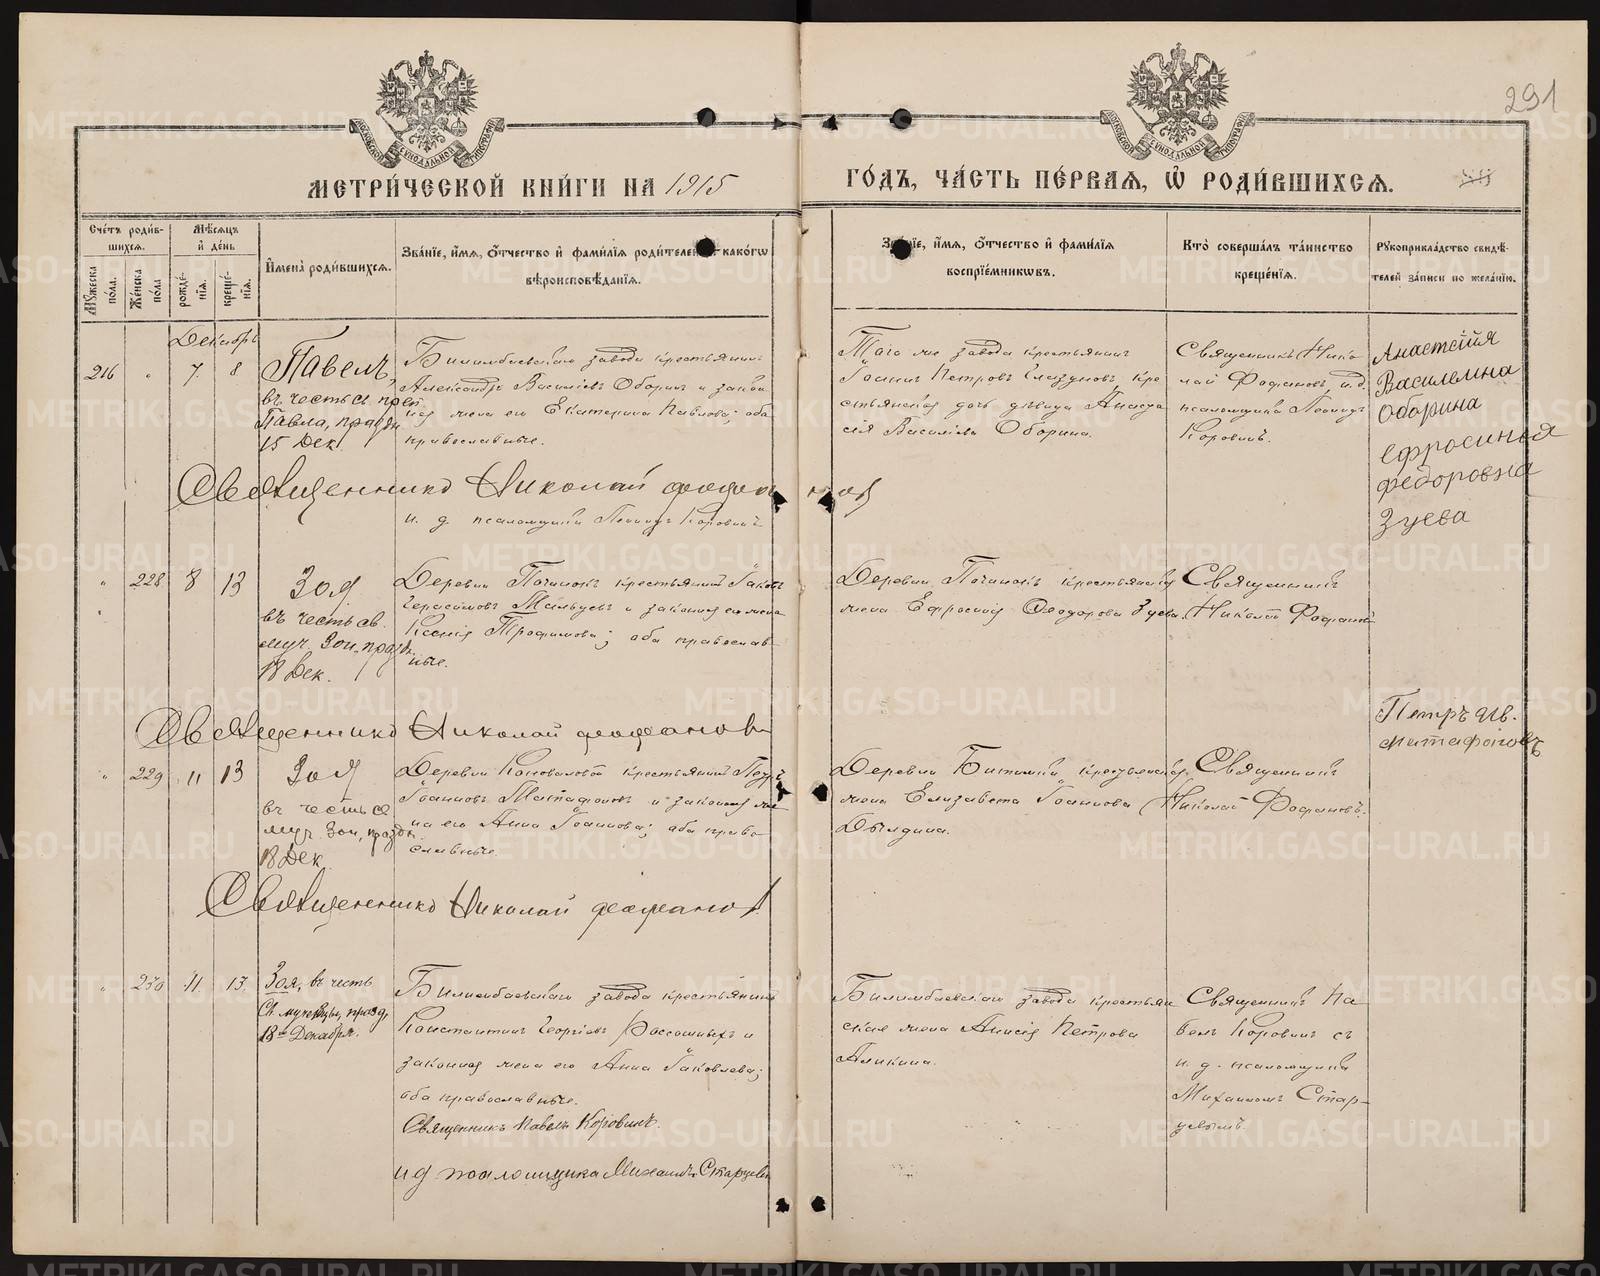 291
МЕТРИ́ЧЕСКОЙ КНИ́ГИ НА 1915
ГО́ДЪ, ЧА́СТЬ ПЕ́РВАѦ, Ѽ РОДИ́ВШИХСѦ.
Сче́тъ роди́в-
шихсѧ.
Мꙋ́жеска по́ла.
Же́нска по́ла
Мѣ́сѧцъ
и҆ де́нь
рожде́-
нїѧ.
креще́-
нїѧ.
И҆мена̀ роди́вшихсѧ.
Зва́нїе, и҆́мѧ, ѻ҆́тчество и҆ фами́лїѧ роди́телей како́гѡ
вѣроисповѣ́данїѧ.
Зва́нїе, и҆́мѧ, ѻ҆́тчество и҆ фами́лїѧ
воспрїе́мникѡвъ.
Кто̀ соверша́лъ та́инство
креще́нїѧ.
Рꙋкоприкла́дство свидѣ́-
телей за́писи по жела́нїю.
Декабрь
216 " 7. 8
Павелъ,
въ честь св. преп.
Павла, праздн.
15 Дек.
Билимбаевскаго завода крестьянинъ
Александръ Василіевъ Оборинъ и закон
ная жена его Екатерина Павлова; оба
православные.
Того же завода крестьянинъ
Іоаннъ Петровъ Глазуновъ, кре
стьянская дочь дѣвица Анаста
сія Василіева Оборина.
Священникъ Нико
лай Фофановъ, и.д.
псаломщика Леонидъ
Коровинъ.
Анастасія
Васильевна
Оборина
Священникъ Николай Фофановъ
и. д. псаломщика Леонидъ Коровинъ
Ефросинья
Федоровна
Зуева
" 228 8 13
Зоя
въ честь св.
муч. Зои, празд.
18 Дек.
Деревни Починокъ крестьянинъ Іаковъ
Герасимовъ Мальцевъ и законная его жена
Ксенія Трофимова; оба православ
ные.
Деревни Починокъ крестьянская
жена Ефросинія Ѳеодорова Зуева.
Священникъ
Николай Фофановъ
Священникъ Николай Фофановъ
Петръ Ив.
Матафоновъ
" 229 11 13
Зоя
въ честь св
муч. Зои, праздн.
18 Дек.
Деревни Коноваловой крестьянинъ Петръ
Іоанновъ Матафоновъ и законная же
на его Анна Іоаннова; оба право
славные.
Деревни Битимки крестьянская
жена Елизавета Іоаннова
Дылдина.
Священникъ
Николай Фофановъ.
Священникъ Николай Фофановъ
" 230 11. 13.
Зоя, въ честь
Св. мученицы, празд.
18го Декабря.
Билимбаевскаго завода крестьянинъ
Константинъ Георгіевъ Рассошныхъ и
законная жена его Анна Іаковлева;
оба православные.
Билимбаевскаго завода крестьян
ская жена Анисія Петрова
Аликина.
Священникъ Па
велъ Коровинъ съ
и. д. псаломщика
Михаиломъ Стар-
цевымъ.
Священникъ Павелъ Коровинъ.
и д псаломщика Михаилъ Старцевъ